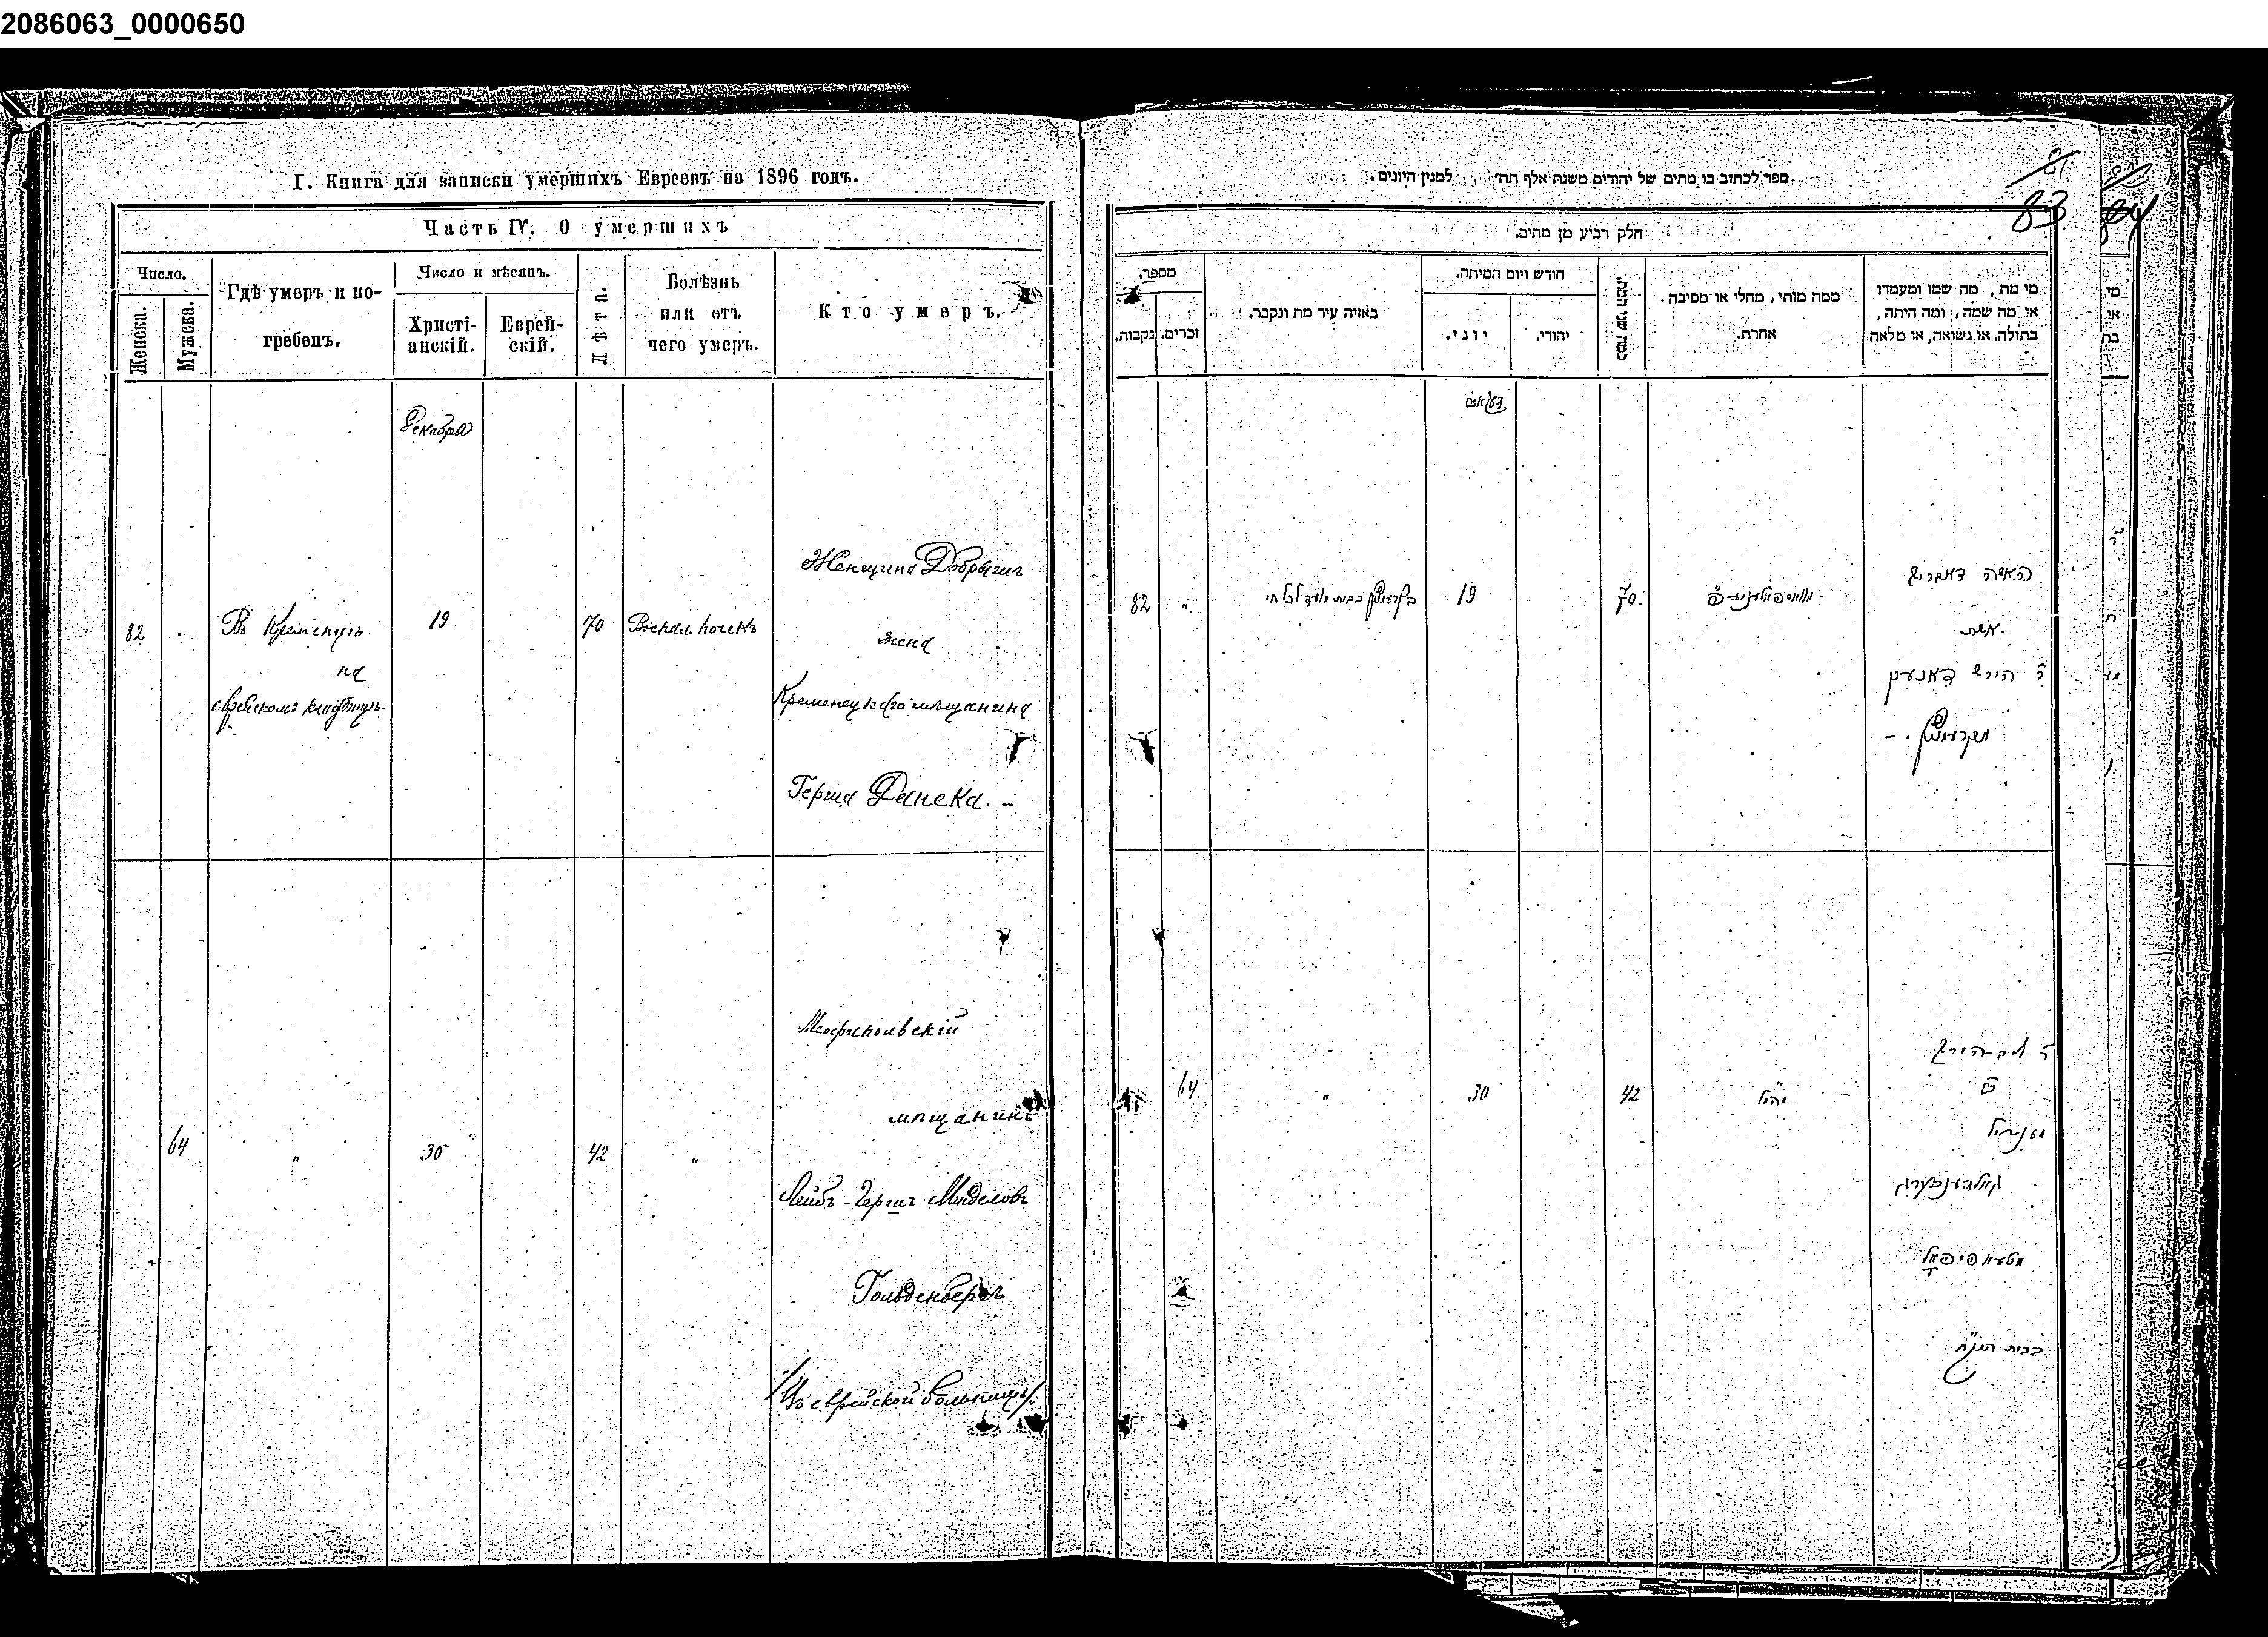 2086063_0000650
I. Книга для записки умершихъ Евреевъ на 1896 годъ.
Часть IV. О умершихъ
Число.
Женска.
Мужска.
Гдѣ умеръ и по-
гребенъ.
Число и мѣсяцъ.
Христі-
анскій.
Еврей-
скій.
Лѣта.
Болѣзнь
или отъ
чего умеръ.
Кто умеръ.
Декабря
82
Въ Кременцѣ
на
еврейскомъ кладбищѣ.
19
70
Воспал. почекъ
Женщина Добрышъ
жена
Кременецкаго мѣщанина
Герша Данека. —
64
"
30
42
"
мѣщанинъ
Лейбъ-Гершъ Менделовъ
Гольденбергъ
/Въ еврейской больницѣ/.
ספר לכתוב בו מתים של יהודים משנת אלף תת׳ למנין היונים.
83
84
חלק רביע מן מתים.
מספר.
נקבות.
זכרים.
באיזה עיר מת ונקבר.
חודש ויום המיתה.
יוני.
יהודי.
כמה שני המת.
ממה מותי, מחלי או מסיבה
אחרת.
מי מת, מה שמו ומעמדו
או מה שמה, ומה היתה,
בתולה, או נשואה, או מלאה
82
"
19
70.
האשה
אשת
ר׳ הירש דאנעק
64
"
30
42
גאלדענבערג
בבית